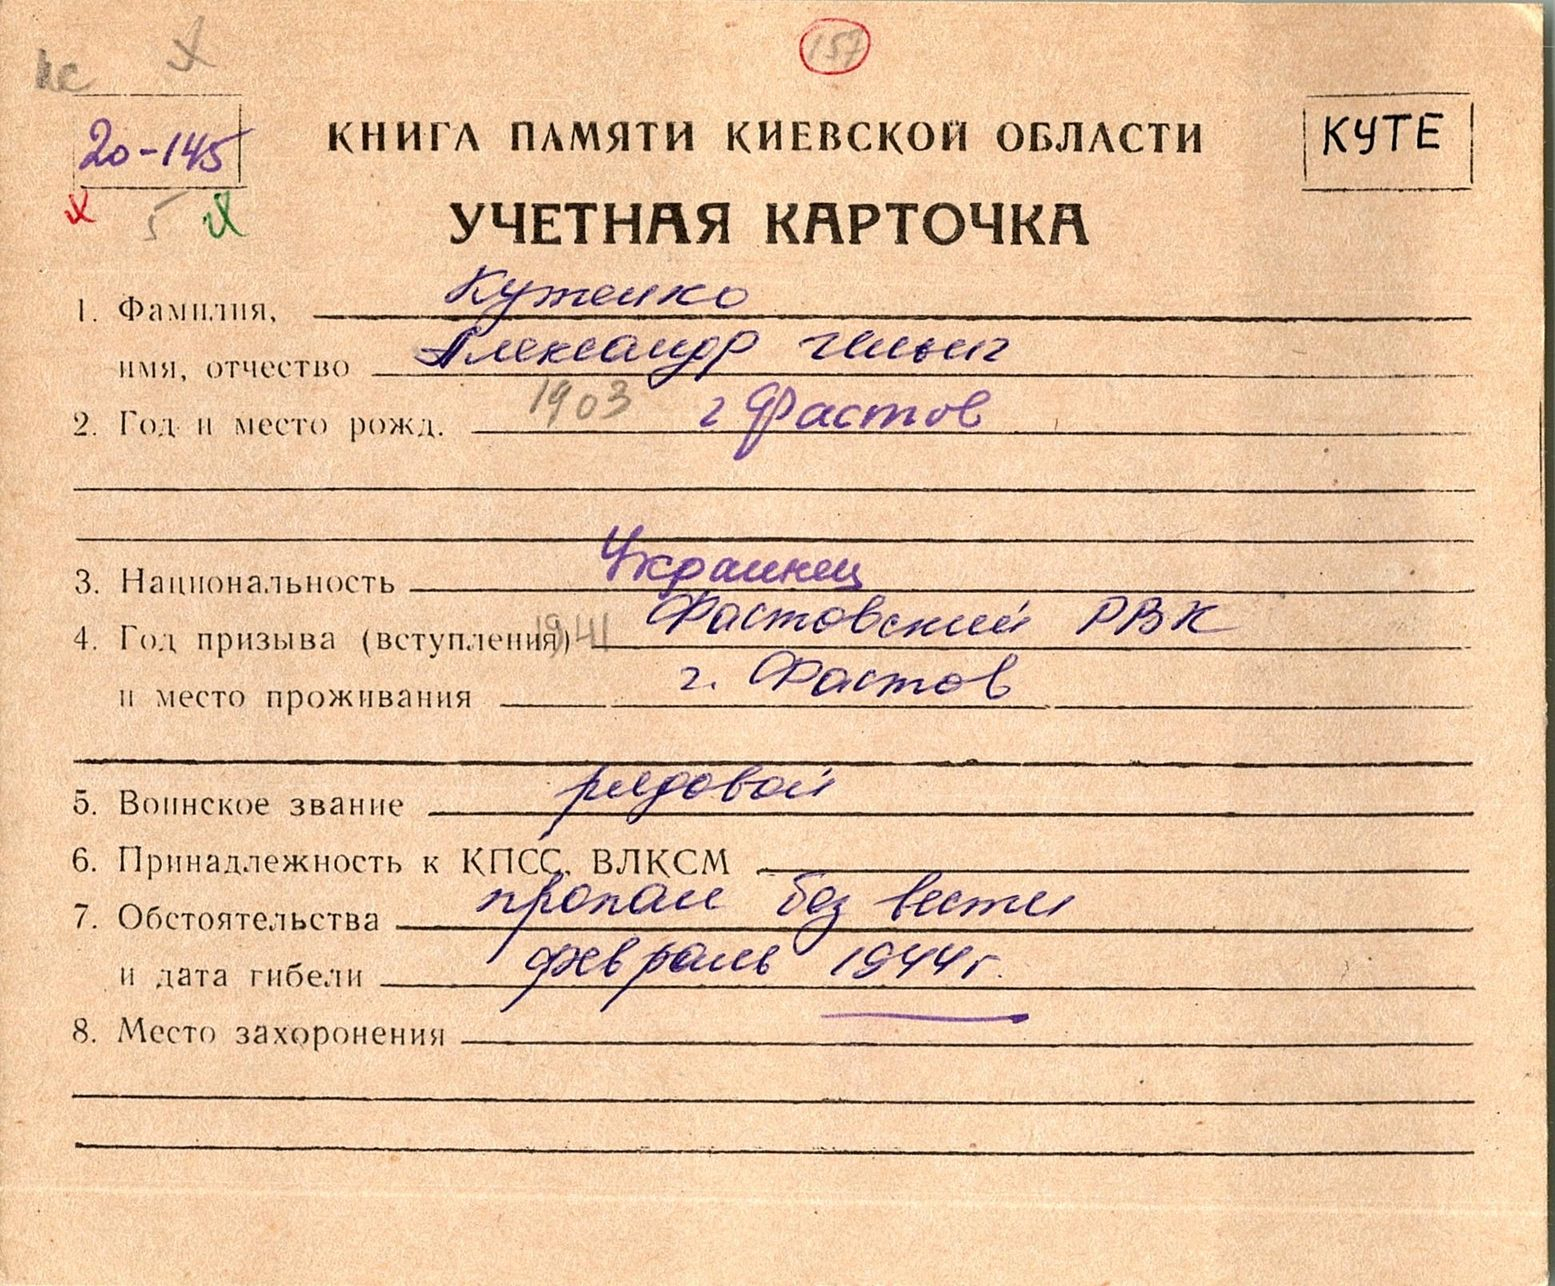 157
20-145
КНИГА ПАМЯТИ КИЕВСКОЙ ОБЛАСТИ
КУТЕ
5
УЧЕТНАЯ КАРТОЧКА
1. Фамилия, Кутенко
имя, отчество Александр
2. Год и место рожд. 1903 г Фастов
3. Национальность Украинец
4. Год призыва (вступления) 1941 Фастовский РВК
и место проживания г. Фастов
5. Воинское звание рядовой
6. Принадлежность к КПСС, ВЛКСМ
7. Обстоятельства пропал без вести
и дата гибели февраль 1944г.
8. Место захоронения